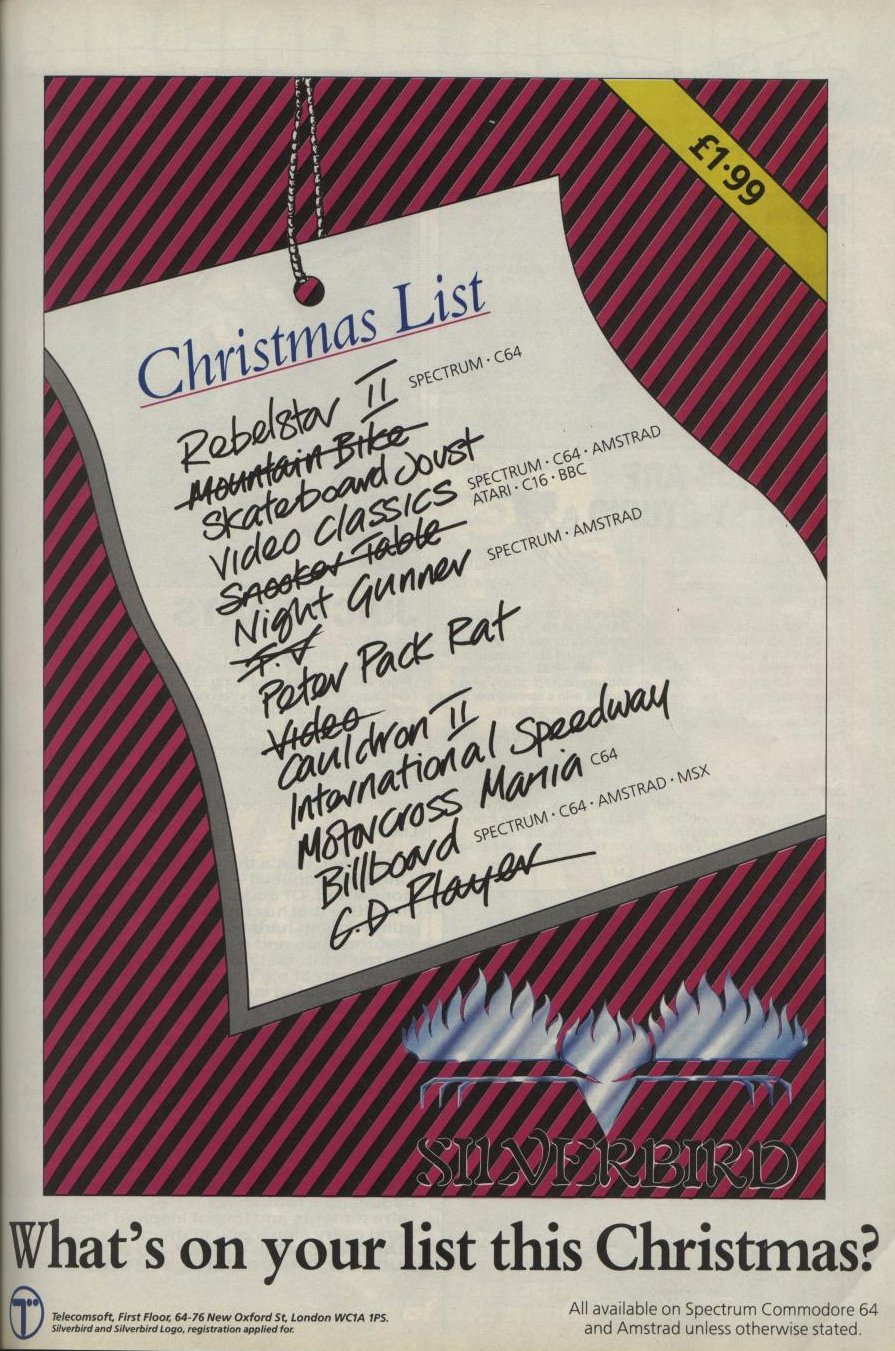 £1·99
Christmas List
Rebelstar II SPECTRUM · C64
Mountain Bike
Skateboard Joust
Video Classics SPECTRUM · C64 · AMSTRAD
ATARI · C16 · BBC
Snooker Table
Night Gunner SPECTRUM · AMSTRAD
T.V
Peter Pack Rat
Video
Cauldron II
International Speedway
Motorcross Mania C64
Billboard SPECTRUM · C64 · AMSTRAD · MSX
C.D. Player
SILVERBIRD
What's on your list this Christmas?
T
Telecomsoft, First Floor, 64-76 New Oxford St, London WC1A 1PS.
Silverbird and Silverbird Logo, registration applied for.
All available on Spectrum Commodore 64
and Amstrad unless otherwise stated.